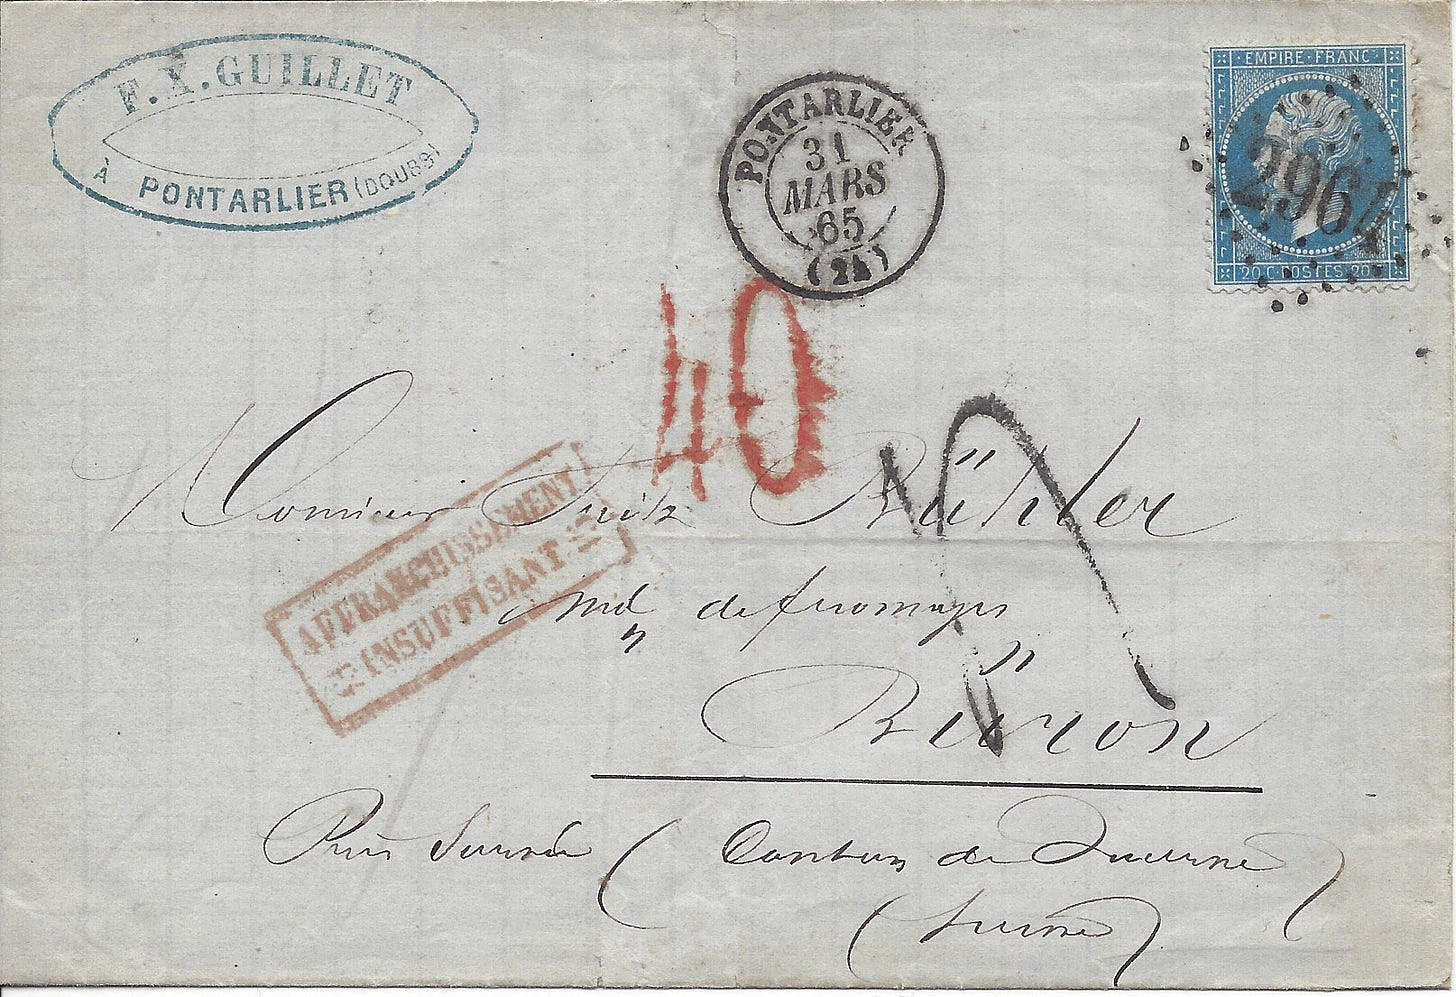 F. X. GUILLET
À PONTARLIER (DOUBS)
PONTARLIER
31
MARS
65
(24)
EMPIRE FRANC
2964
20 C POSTES 20 C
40
AFFRANCHISSEMENT
INSUFFISANT
Monsieur Fritz Bühler
md de fromages
Büron
Près Sursée (Canton de Lucerne)
(Suisse)